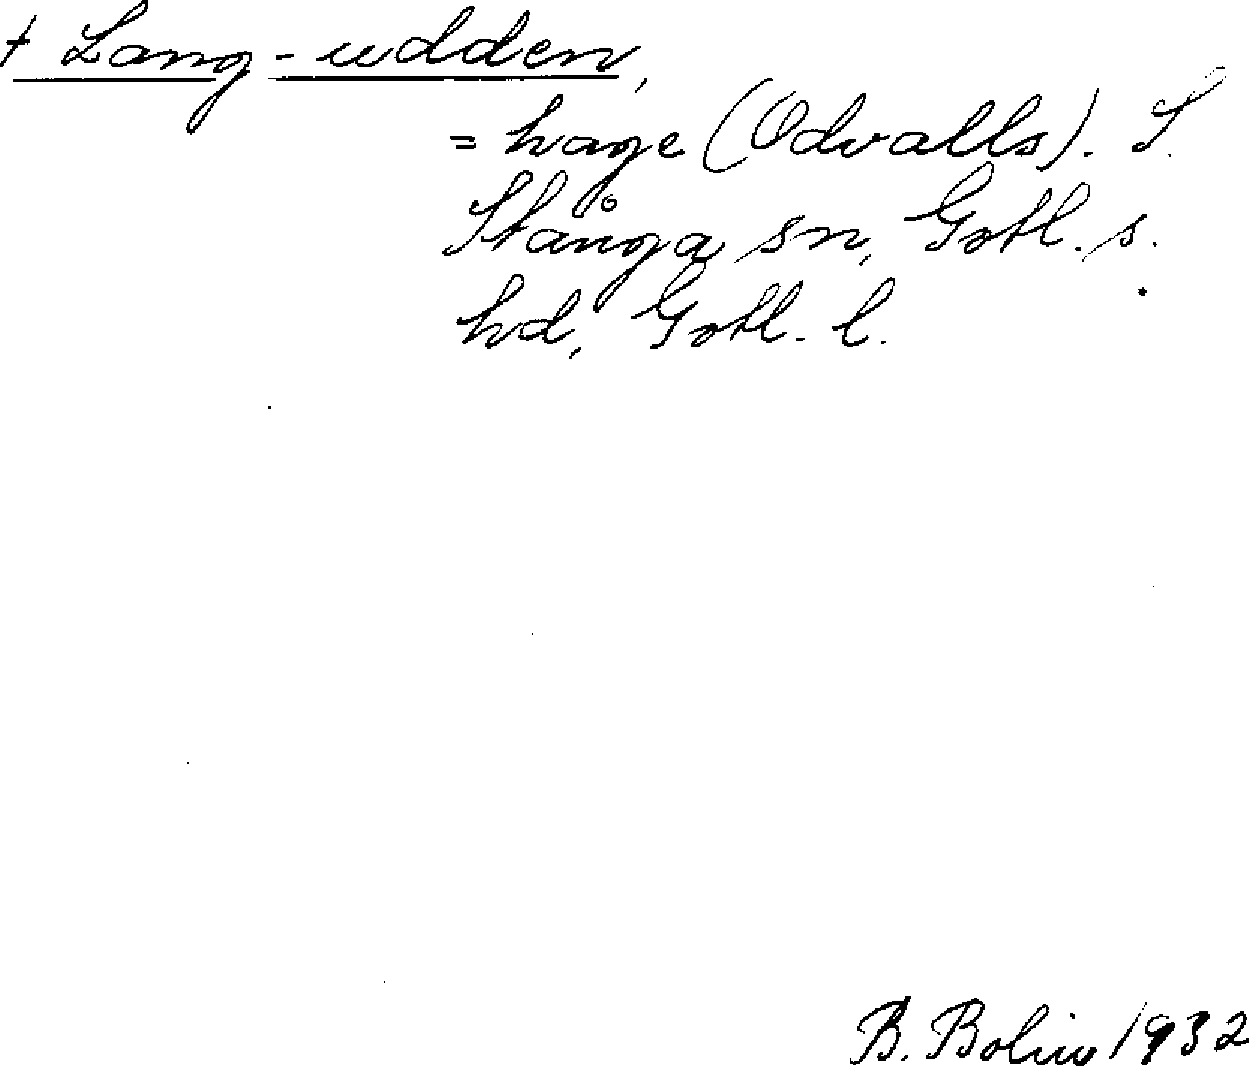 † Lang-udden,
= hage (Odvalls). S.
Stånga sn, Gotl. s.
hd, Gotl. l.
B. Bolin 1932